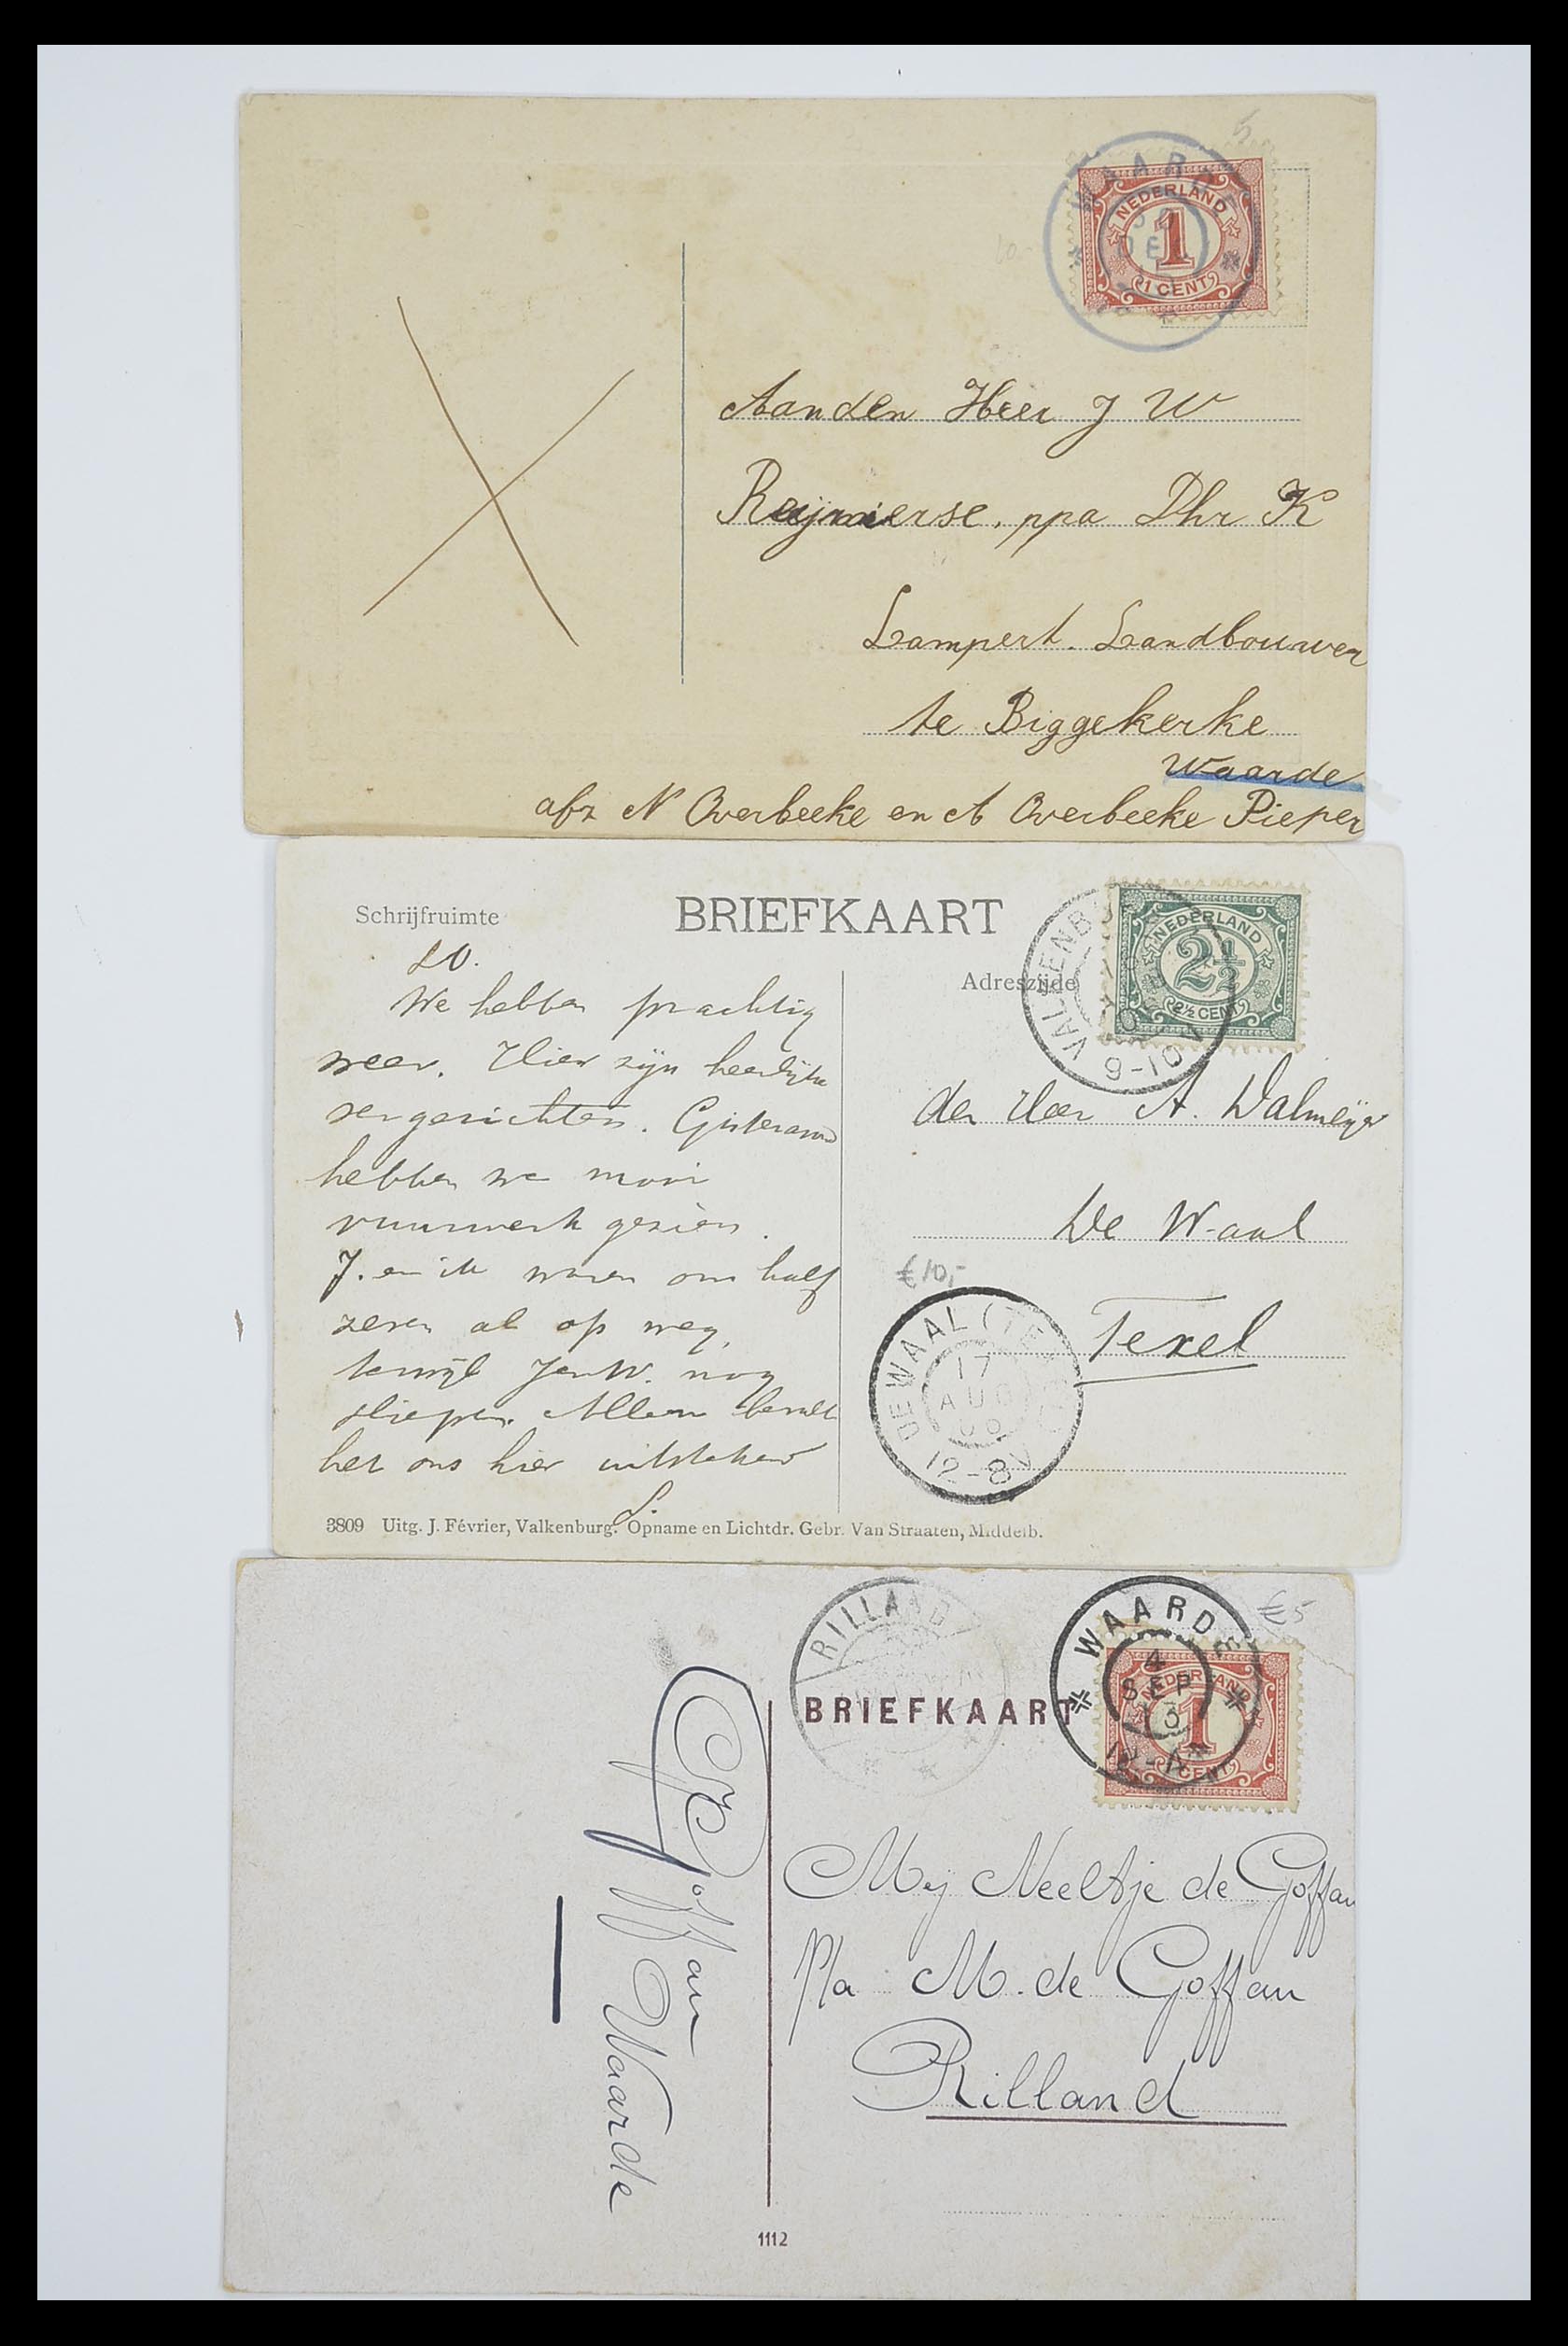 5
WAARDE
NEDERLAND
DEC
1
1 CENT
10-
Aan den Heer J W
Reijnierse, ppa Dhr K
Lampert. Landbouwer
te Biggekerke
Waarde
afz N Overbeeke en A Overbeeke Pieper
Schrijfruimte
BRIEFKAART
Adreszijde
VALKENB
9-10V
NEDERLAND
2½
2½ CENT
We hebben prachtig
weer. Hier zijn heerlijke
vergezichten. Gisteravond
hebben we mooi
vuurwerk gezien.
J. en ik waren om half
zeven al op weg,
terwijl J en W. nog
sliepen. Alleen bevalt
het ons hier uitstekend
S.
den Heer A. Dalmeijer
De Waal
Texel
€10,-
DE WAAL (TEXEL)
17
AUG
12-8V
3809 Uitg. J. Février, Valkenburg. Opname en Lichtdr. Gebr. Van Straaten, Middelb.
RILLAND
WAARDE
4
SEP
13
€5
NEDERLAND
1
1 CENT
BRIEFKAART
Mej Neeltje de Goffau
P/a M. de Goffau
Rilland
Goffau
Waarde
1112